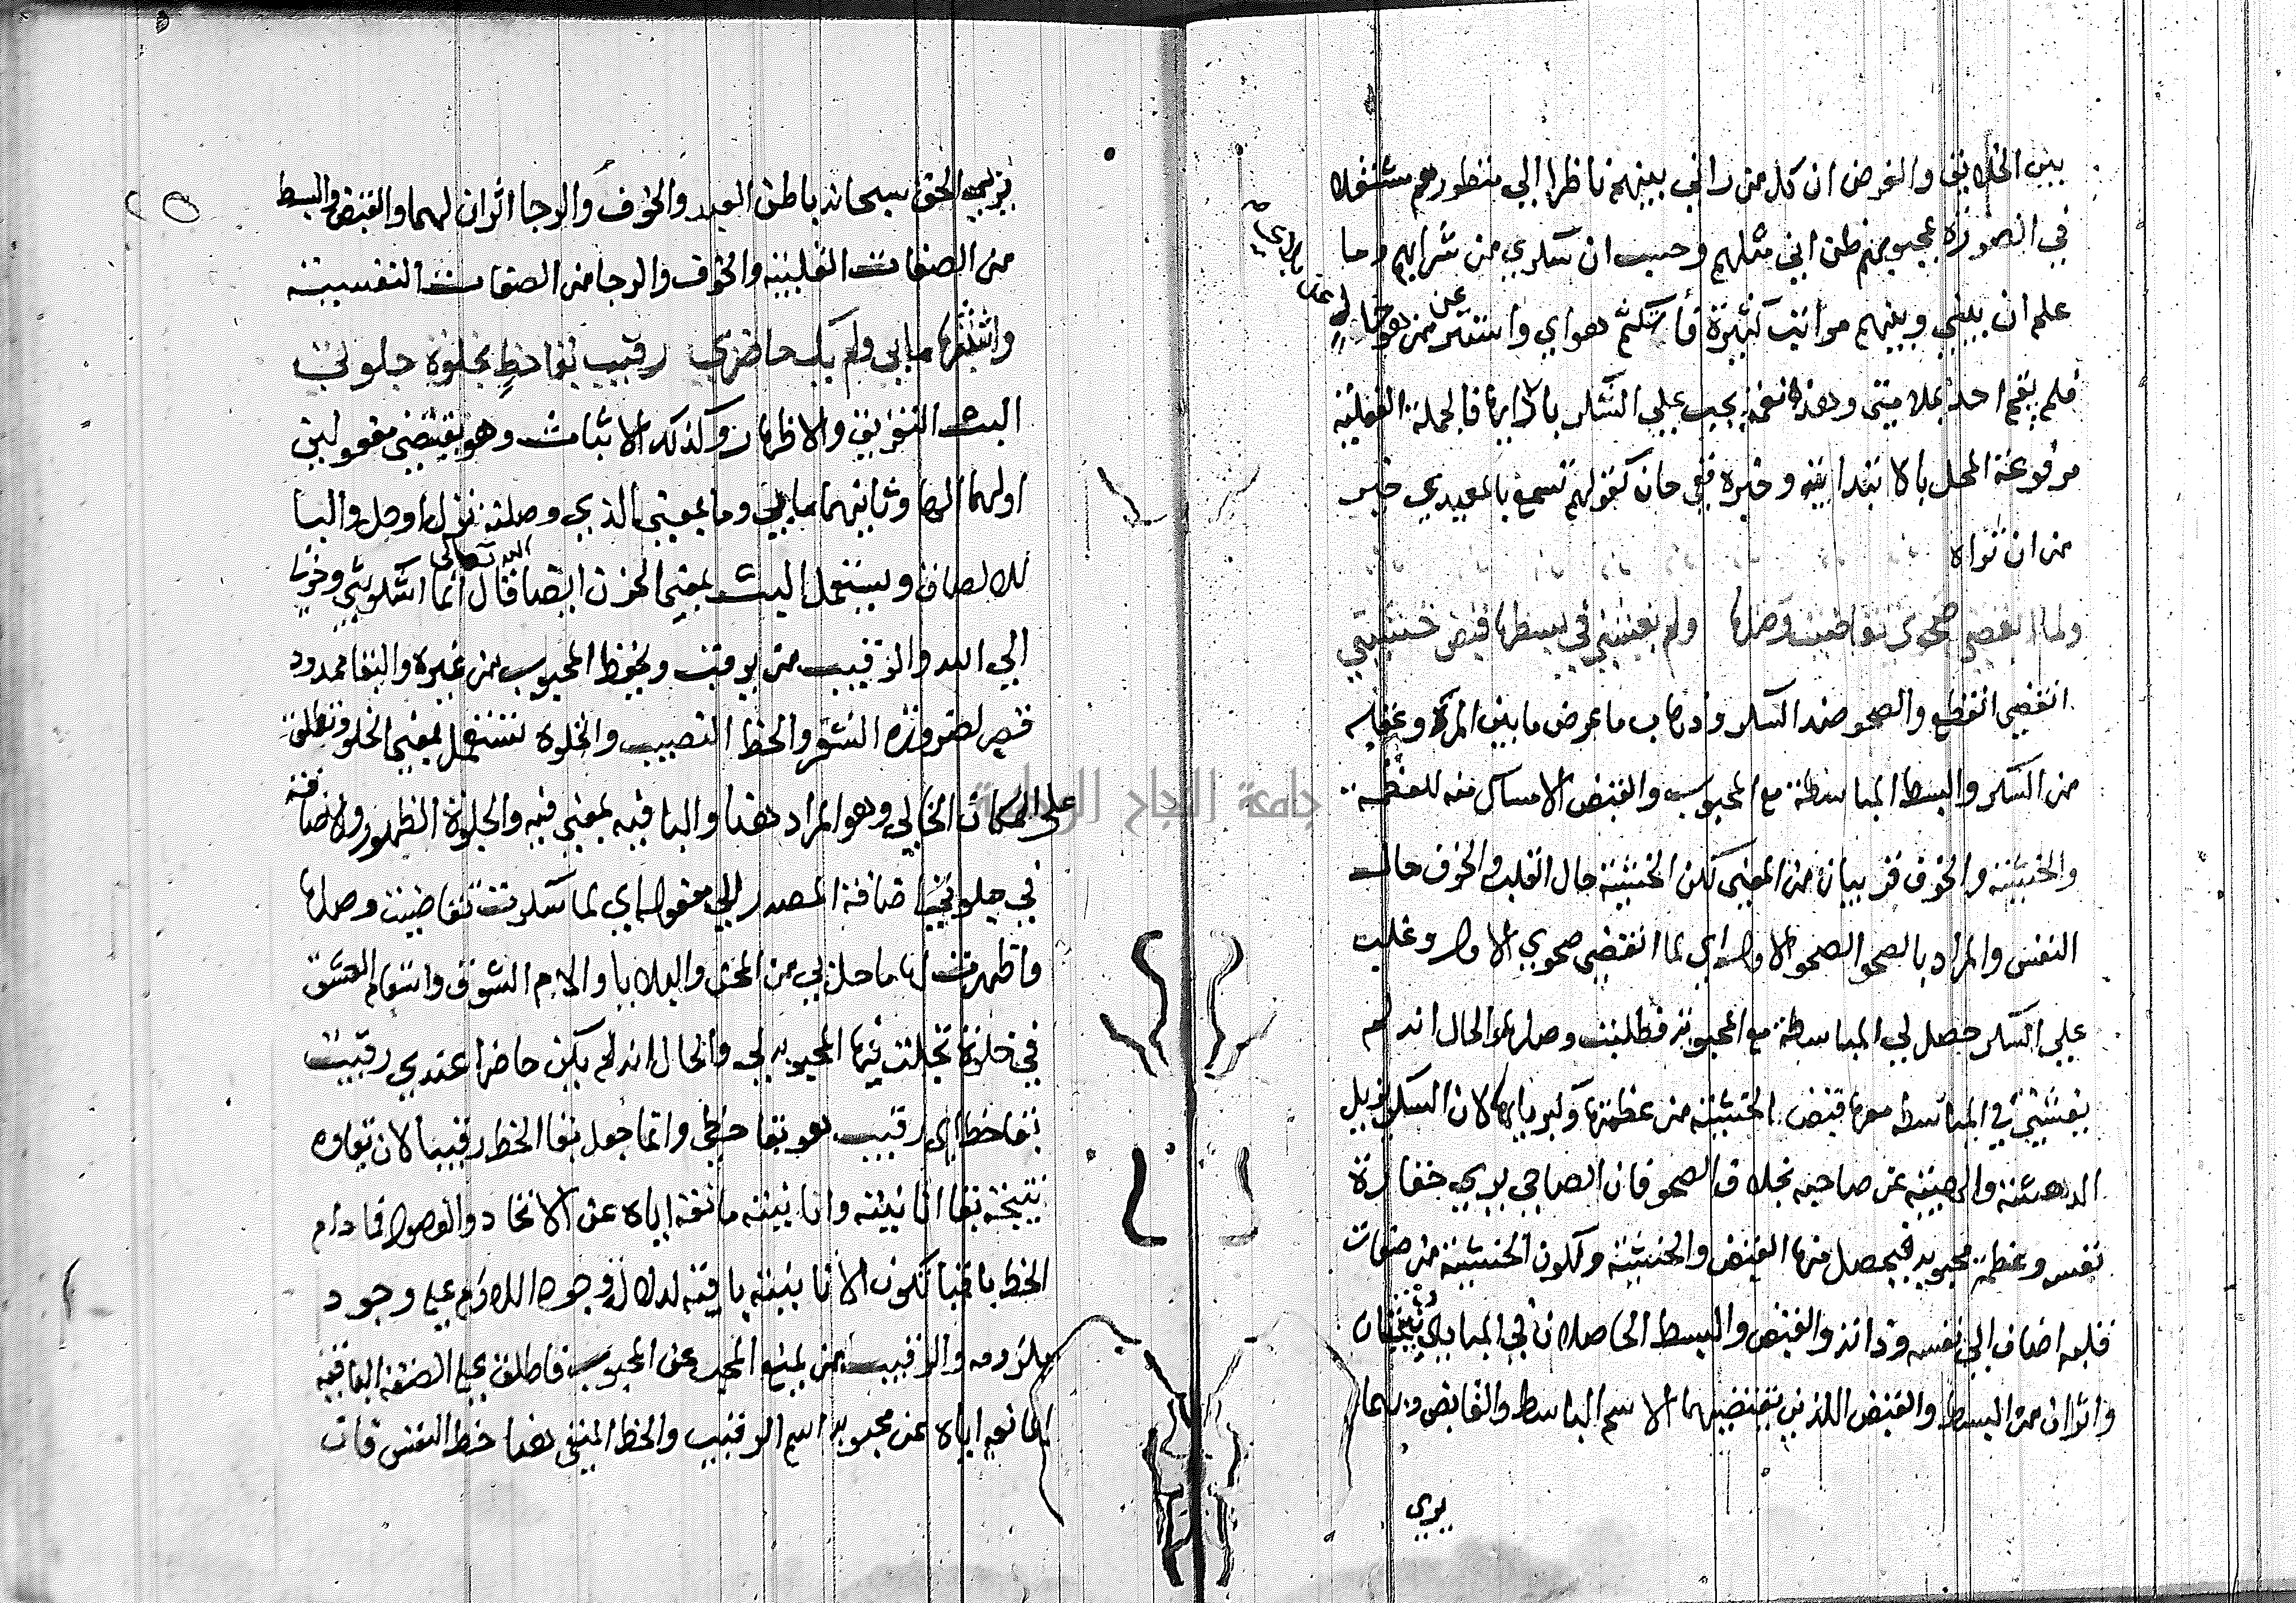 بين الخلايق والغرض ان كل من راني بينهم ناظرا الي منظورهم مشتغلا
في الصورة بمحبوبهم ظن اني مثلهم وحسب ان سكري من شرابهم وما
علم ان بيني وبينهم مراتب كثيرة فاستكتم هواي واستتر عن من هو خال
فلم يقم احد بملامتي وهذه نعمة يجب علي الشكر بازايها فالجملة الفعلية
مرفوعة المحل بالابتدايية وخبره فتي حان كقولهم تسمع بالمعيدي خير
من ان تراه
ولما انقضى صحوي تقاضيت وصلها ولم يغشني في بسطها قبض خشيتي
انقضى انقطع والصحو ضد السكر وذهاب ما عرض ما بين المرء وعقله
من السكر والبسط المباسطة مع المحبوب والقبض الامساك منه للعظمة
والخشية والخوف قريبان من المعنى لكن الخشية حال القلب والخوف حال
النفس والمراد بالصحو الصحو الاول اي لما انقضى صحوي الاول وغلب
علي السكر حصل لي المباسطة مع المحبوبة فطلبت وصلها والحال انه لم
يغشني في المباسطة معها قبض الخشية من عظمتها وكبريايها لان السكر يزيل
الدهشة والهيبة عن صاحبه بخلاف الصحو فان الصاحي يري حقارة
نفسه وعظمة محبوبه فيحصل منها القبض والخشية ولكون الخشية من صفات
قلبه اضاف الي نفسه وذاته والقبض والبسط الحاصلان في المبادي
واثران من البسط والقبض اللذين يقتضيهما الاسم الباسط والقابض وبهما
يربي
يربي الحق سبحانه باطن العبد والخوف والرجا اثران لهما والقبض والبسط
من الصفات القلبية والخوف والرجا من الصفات النفسية
وابثثتها ما بي ولم يك حاضري رقيب بقا حظ بخلوة جلوتي
البث التفريق والاظهار وكذلك الابثاث وهو يقتضي مفعولين
اولهما الها وثانيهما ما بي وما بمعنى الذي وصلته نزل او حل والبا
للالصاق ويستعمل البث بمعنى الحزن ايضا قال الله تعالى انما اشكو بثي وحزني
الي الله والرقيب من يرقب ويحفظ المحبوب من غيره والبقا ممدود
قصر لضرورة الشعر والحظ النصيب والخلوة تستعمل بمعنى الخلو وتطلق
على المكان الخالي وهو المراد هنا والبا فيه بمعنى فيه والجلوة الظهور والاضافة
في جلوتي اضافة المصدر الي مفعوله اي لما سكرت تقاضيت وصلها
واظهرت لها ما حل بي من المحن والبلايا والام الشوق واسقام العشق
في خلوة تجلت فيها المحبوبة لي والحال انه لم يكن حاضرا عندي رقيب
بقا حظ اي رقيب هو بقا حظي وانما جعل بقا الحظ رقيبا لان بقاه
نتيجة بقا انانيته وانانيته مانعة اياه عن الاتحاد والوصول فما دام
الحظ باقيا تكون الانانية باقية لدلالة وجود اللازم علي وجود
ملزومه والرقيب من يمنع المحب عن المحبوب فاطلق علي الصفة الباقية
المانعة اياه عن محبوبه اسم الرقيب والحظ المنفي هنا حظ النفس فان
جامعة النجاح الوطنية